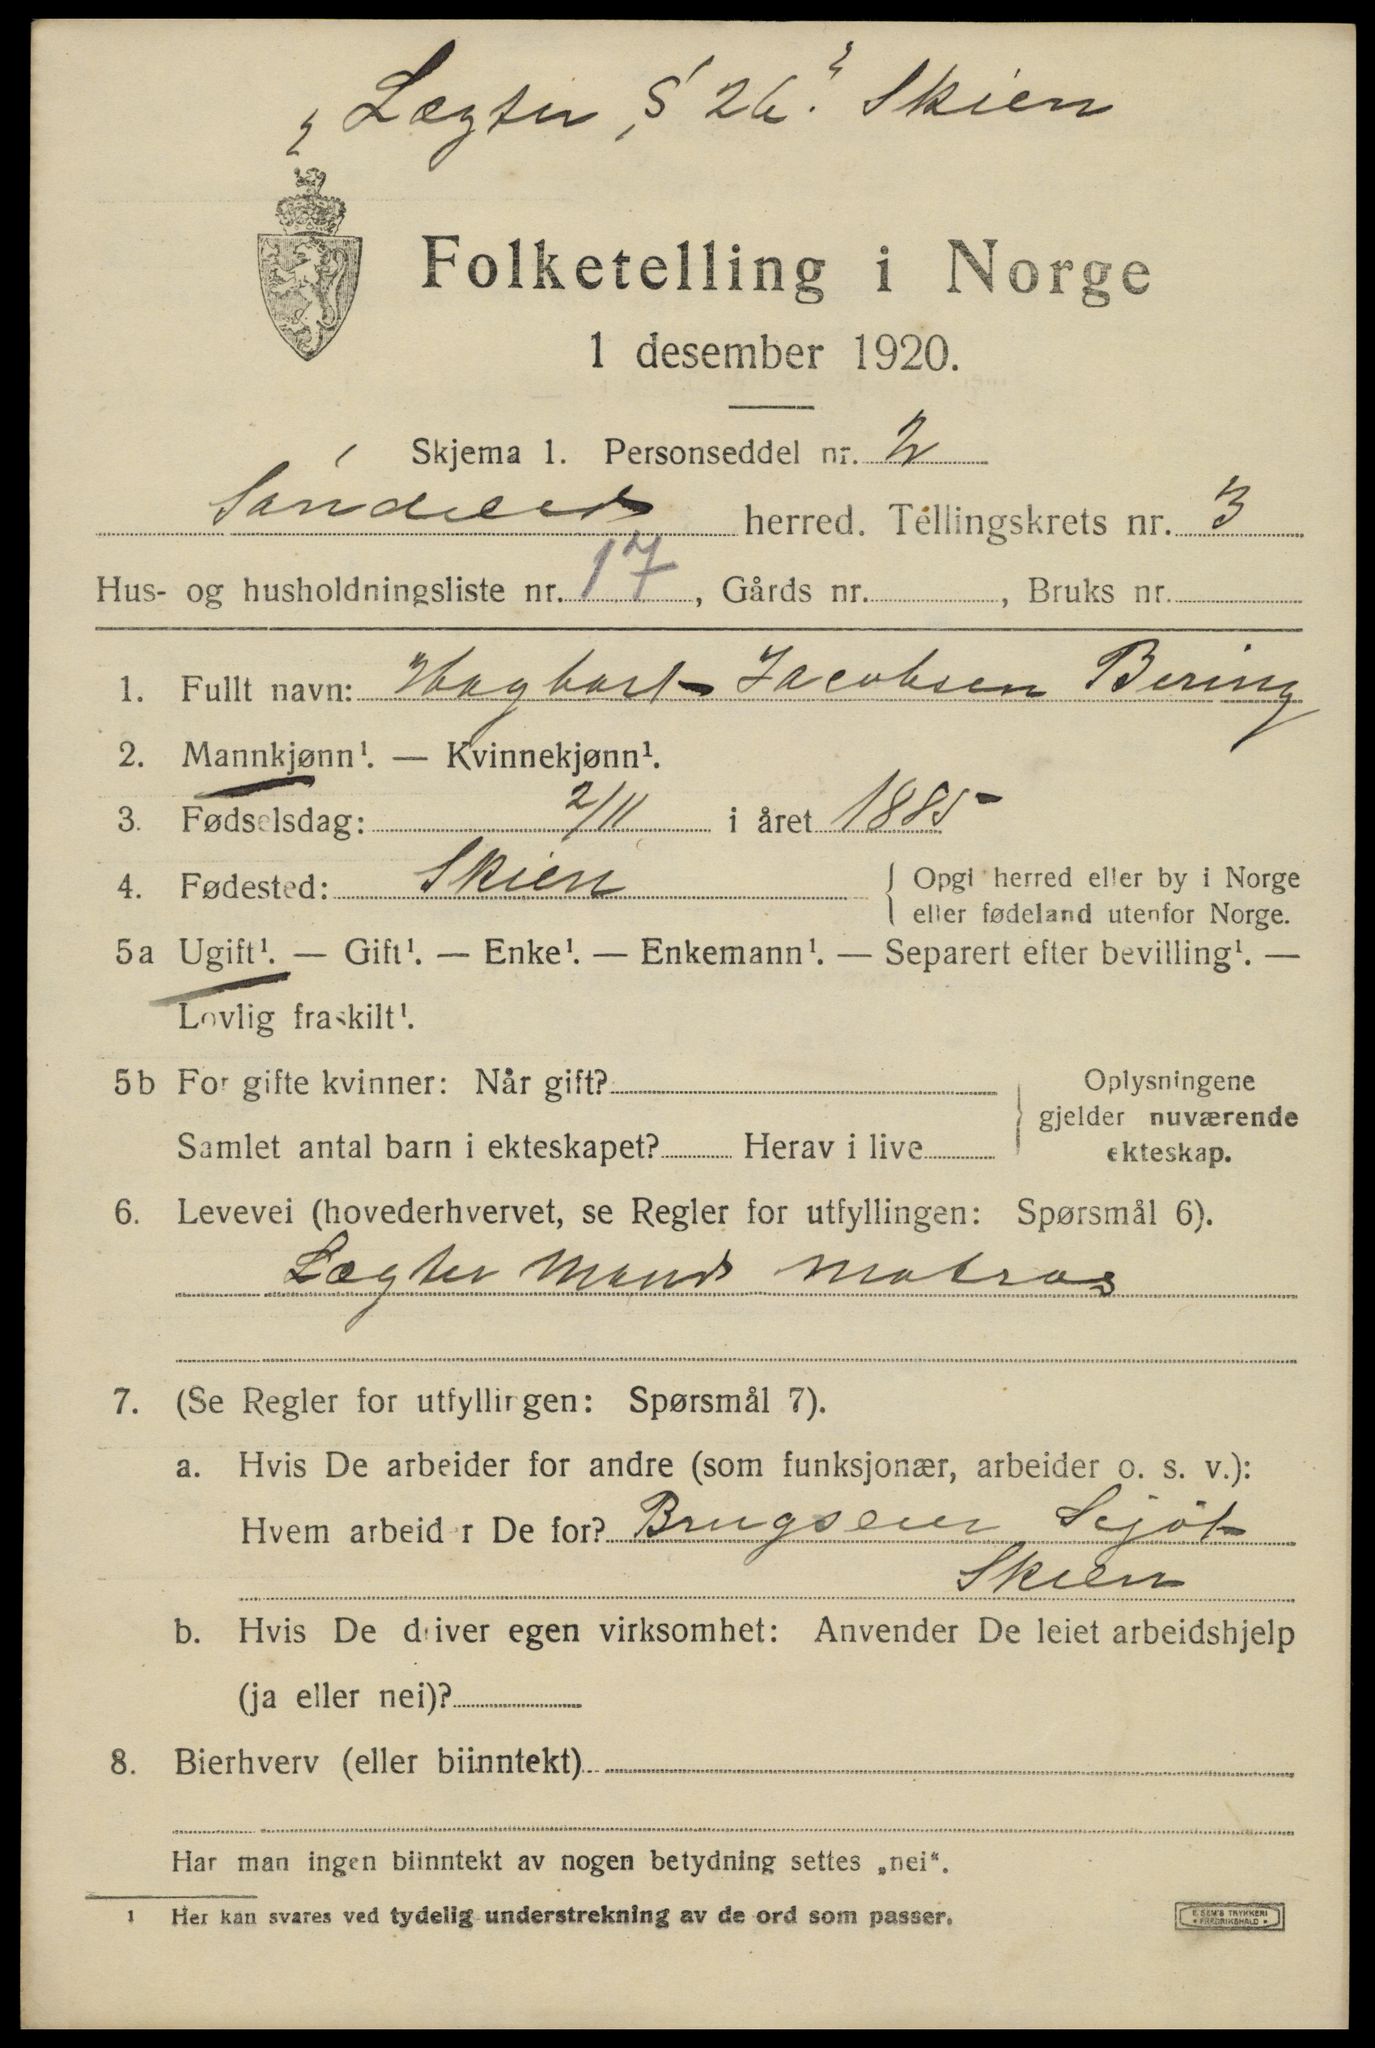 "Lægter S 26" Skien
Folketelling i Norge
1 desember 1920.
Skjema 1. Personseddel nr. 2
Sandeid herred. Tellingskrets nr. 3
Hus- og husholdningsliste nr. 17, Gårds nr. , Bruks nr.
1. Fullt navn: Hagbart Jacobsen Bering
2. Mannkjønn¹. — Kvinnekjønn¹.
3. Fødselsdag: 2/11 i året 1885
4. Fødested: Skien { Opgi herred eller by i Norge
eller fødeland utenfor Norge.
5a Ugift¹. — Gift¹. — Enke¹. — Enkemann¹. — Separert efter bevilling¹. —
Lovlig fraskilt¹.
5b For gifte kvinner: Når gift? } Oplysningene
gjelder nuværende
Samlet antal barn i ekteskapet? Herav i live
ekteskap.
6. Levevei (hovederhvervet, se Regler for utfyllingen: Spørsmål 6).
Lægter Mand matros
7. (Se Regler for utfyllingen: Spørsmål 7).
a. Hvis De arbeider for andre (som funksjonær, arbeider o. s. v.):
Hvem arbeider De for? Brugseier
Skien
b. Hvis De driver egen virksomhet: Anvender De leiet arbeidshjelp
(ja eller nei)?
8. Bierhverv (eller biinntekt)
Har man ingen biinntekt av nogen betydning settes „nei“.
¹ Her kan svares ved tydelig understrekning av de ord som passer.
E. SEM'S TRYKKERI
• FREDRIKSHALD •